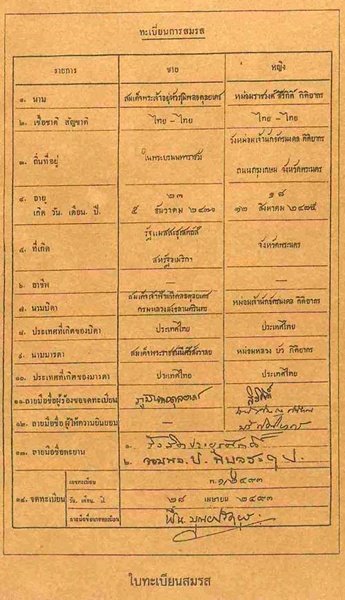 ทะเบียนการสมรส
รายการ ชาย หญิง
๑. นาม สมเด็จพระเจ้าอยู่หัวภูมิพลอดุลยเดช หม่อมราชวงศ์ สิริกิติ์ กิติยากร
๒. เชื้อชาติ สัญชาติ ไทย – ไทย ไทย – ไทย
๓. ถิ่นที่อยู่ ในพระบรมมหาราชวัง วังหม่อมเจ้านักขัตรมงคล กิติยากร
ถนนกรุงเกษม จังหวัดพระนคร
๔. อายุ ๒๓ ๑๘
เกิด วัน. เดือน. ปี. ๕ ธันวาคม ๒๔๗๐ ๑๒ สิงหาคม ๒๔๗๕
๕. ที่เกิด รัฐแมสสะชูเสตต์ส์ จังหวัดพระนคร
สหรัฐอเมริกา
๖. อาชีพ — —
๗. นามบิดา สมเด็จเจ้าฟ้ามหิดลอดุลยเดช หม่อมเจ้านักขัตรมงคล กิติยากร
กรมหลวงสงขลานครินทร์
๘. ประเทศที่เกิดของบิดา ประเทศไทย ประเทศไทย
๙. นามมารดา สมเด็จพระราชชนนีศรีสังวาลย์ หม่อมหลวง บัว กิติยากร
๑๐. ประเทศที่เกิดของมารดา ประเทศไทย ประเทศไทย
๑๑. ลายมือชื่อผู้ร้องขอจดทะเบียน ภูมิพลอดุลยเดช สิริกิติ์
๑๒. ลายมือชื่อ ผู้ให้ความยินยอม
๑๓. ลายมือชื่อพยาน ๑.
๒. จอมพล ป. พิบูลสงคราม
๑๔. จดทะเบียน เลขทะเบียน ๑/๒๔๙๓
วัน. เดือน. ปี ๒๘ เมษายน ๒๔๙๓
ลายมือชื่อนายทะเบียน
ใบทะเบียนสมรส